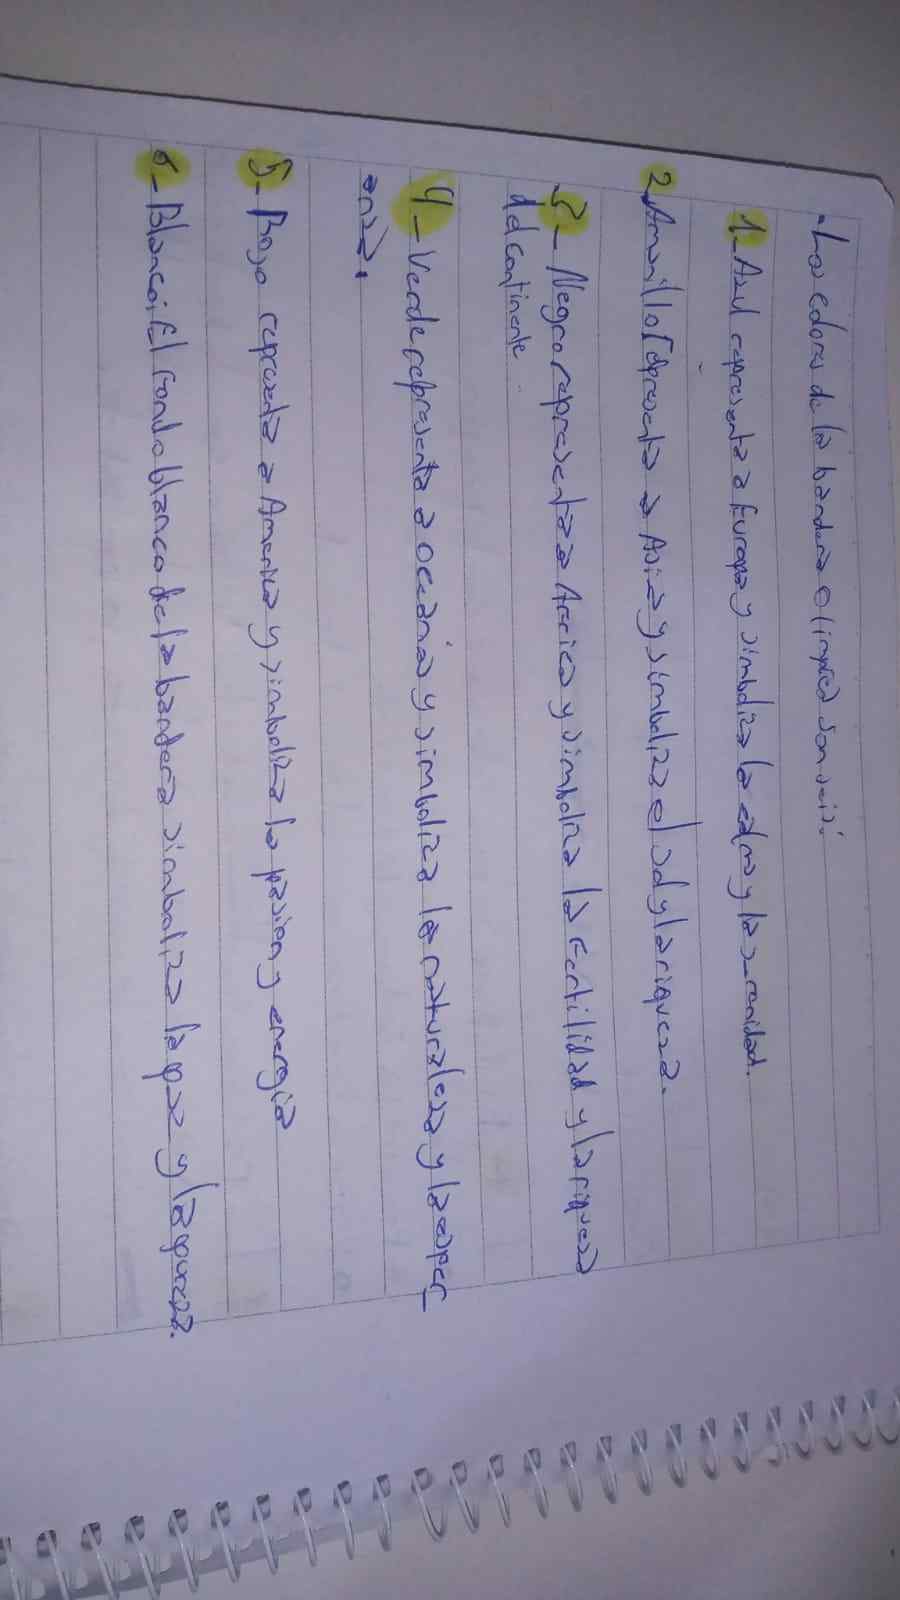 . Los colores de la bandera Olimpica son seis:
1_ Azul representa a Europa y simboliza la calma y la serenidad.
2_ Amarillo representa a Asia y simboliza el sol y la riqueza.
3_ Negro representa a Africa y simboliza la Fertilidad y la riqueza
del continente
4_ Verde representa a Oceania y simboliza la naturaleza y la esper_
anza.
5_ Rojo representa a America y simboliza la pasion y energia
6_ Blanco: El fondo blanco de la bandera simboliza la paz y la pureza.